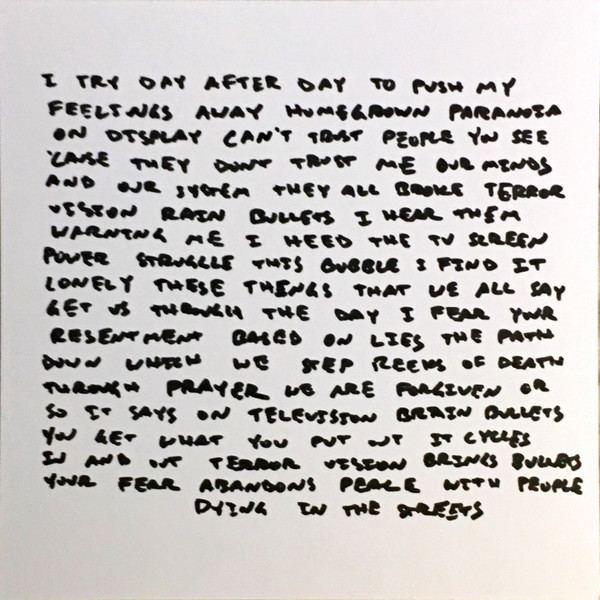 I TRY DAY AFTER DAY TO PUSH MY
FEELINGS AWAY HOMEGROWN PARANOIA
ON DISPLAY CAN'T TRUST PEOPLE YOU SEE
'CAUSE THEY DON'T TRUST ME OUR MINDS
AND OUR SYSTEM THEY ALL BROKE TERROR
VISION RAIN BULLETS I HEAR THEM
WARNING ME I HEED THE TV SCREEN
POWER STRUGGLE THIS BUBBLE I FIND IT
LONELY THESE THINGS THAT WE ALL SAY
GET US THROUGH THE DAY I FEAR YOUR
RESENTMENT BASED ON LIES THE PATH
DOWN WHICH WE STEP REEKS OF DEATH
THROUGH PRAYER WE ARE FORGIVEN OR
SO IT SAYS ON TELEVISION BRAIN BULLETS
YOU GET WHAT YOU PUT OUT IT CYCLES
IN AND OUT TERROR VISION BRINGS BULLETS
YOUR FEAR ABANDONS PEACE WITH PEOPLE
DYING IN THE STREETS